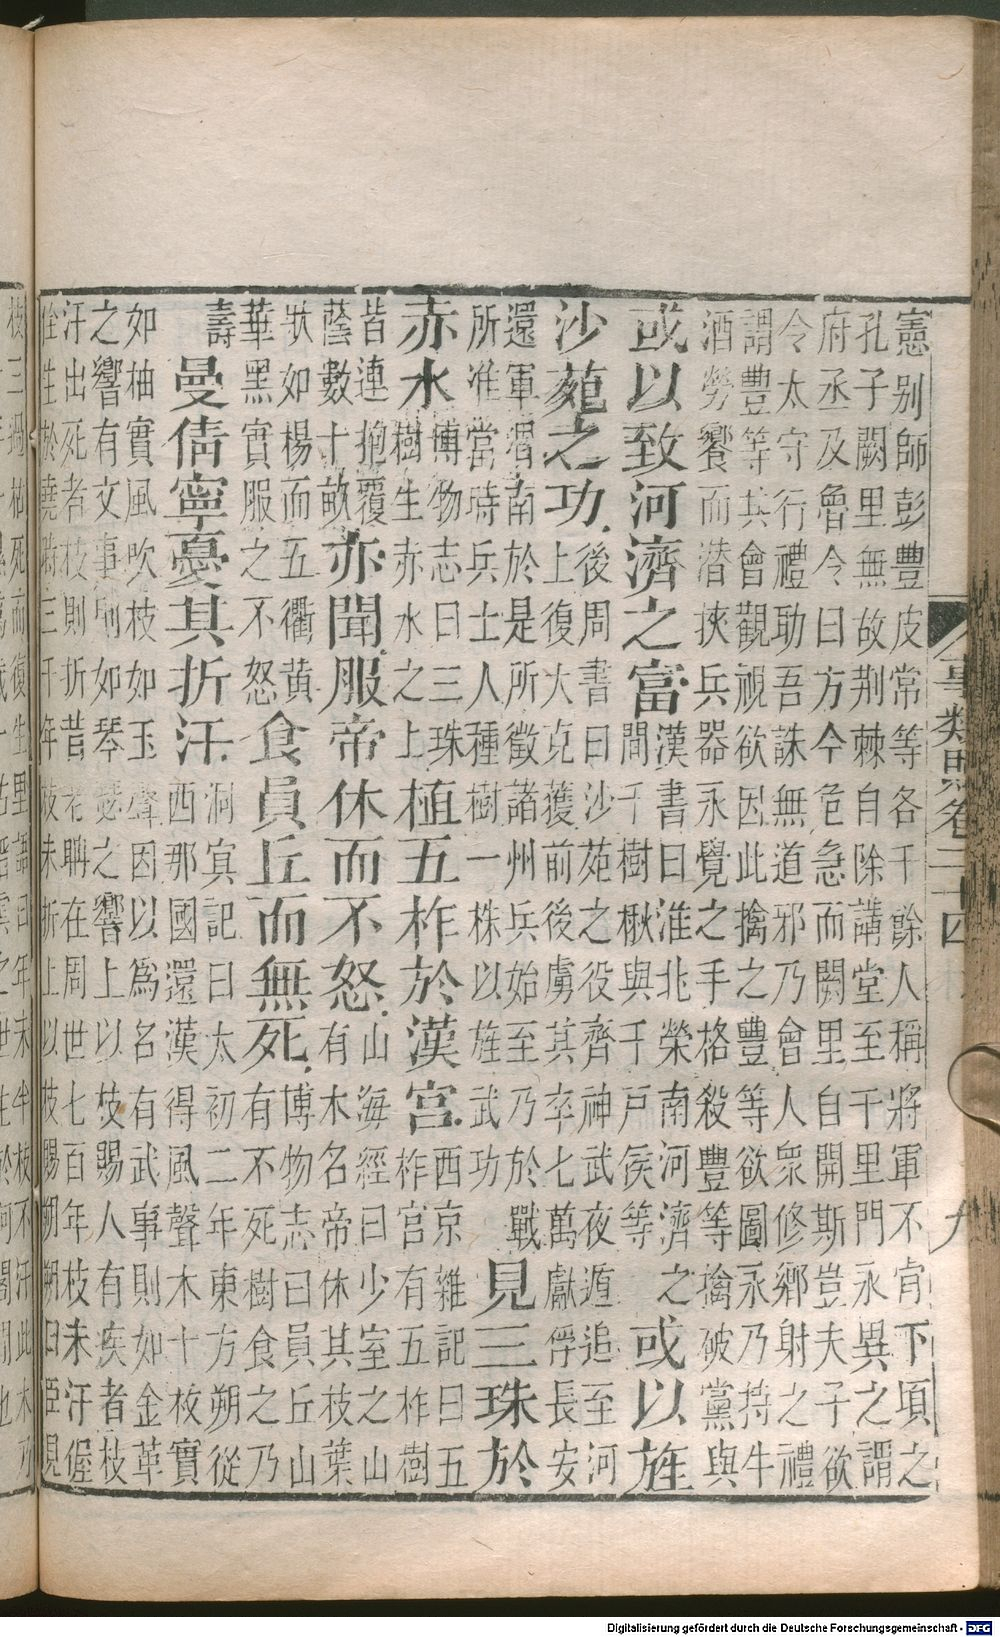 事類賦卷二十四
九
憲别師彭豐皮常等各千餘人稱將軍不肯下頃之
孔子闕里無故荆棘自除講堂至于里門永異之謂
府丞及魯令曰方今危急而闕里自開斯豈夫子欲
令太守行禮助吾誅無道邪乃會人衆修鄉射之禮
謂豐等共會觀視欲因此擒之豐等欲圖永乃持牛
酒勞饗而潜挾兵器永覺之手格殺豐等擒破黨與
或以致河濟之富漢書曰淮北榮南河濟之間千樹楸與千戸侯等或以旌
沙苑之功後周書曰沙苑之役齊神武夜遁追至河上復大克獲前後虜其卒七萬獻俘長安
還軍渭南於是所徵諸州兵始至乃於戰所准當時兵士人種樹一株以旌武功見三珠於
赤水博物志曰三珠樹生赤水之上植五柞於漢宮西京雜記曰五柞宮有五柞樹
皆連抱覆蔭數十畝亦聞服帝休而不怒山海經曰少室之山有木名帝休其枝葉
狀如楊而五衢黄華黑實服之不怒食員丘而無死博物志曰員丘山有不死樹食之乃
壽曼倩寧憂其折汗洞冥記曰太初二年東方朔從西那國還漢得風聲木十枚實
如柚實風吹枝如玉聲因以爲名有武事則如金革
之響有文事則如琴瑟之響上以枝賜人有疾者枝
汗出死者枝則折昔老聃在周世七百年枝未汗偓
佺生於堯時三千年枝未折上以枝賜朔朔曰臣見
Digitalisierung gefördert durch die Deutsche Forschungsgemeinschaft - DFG